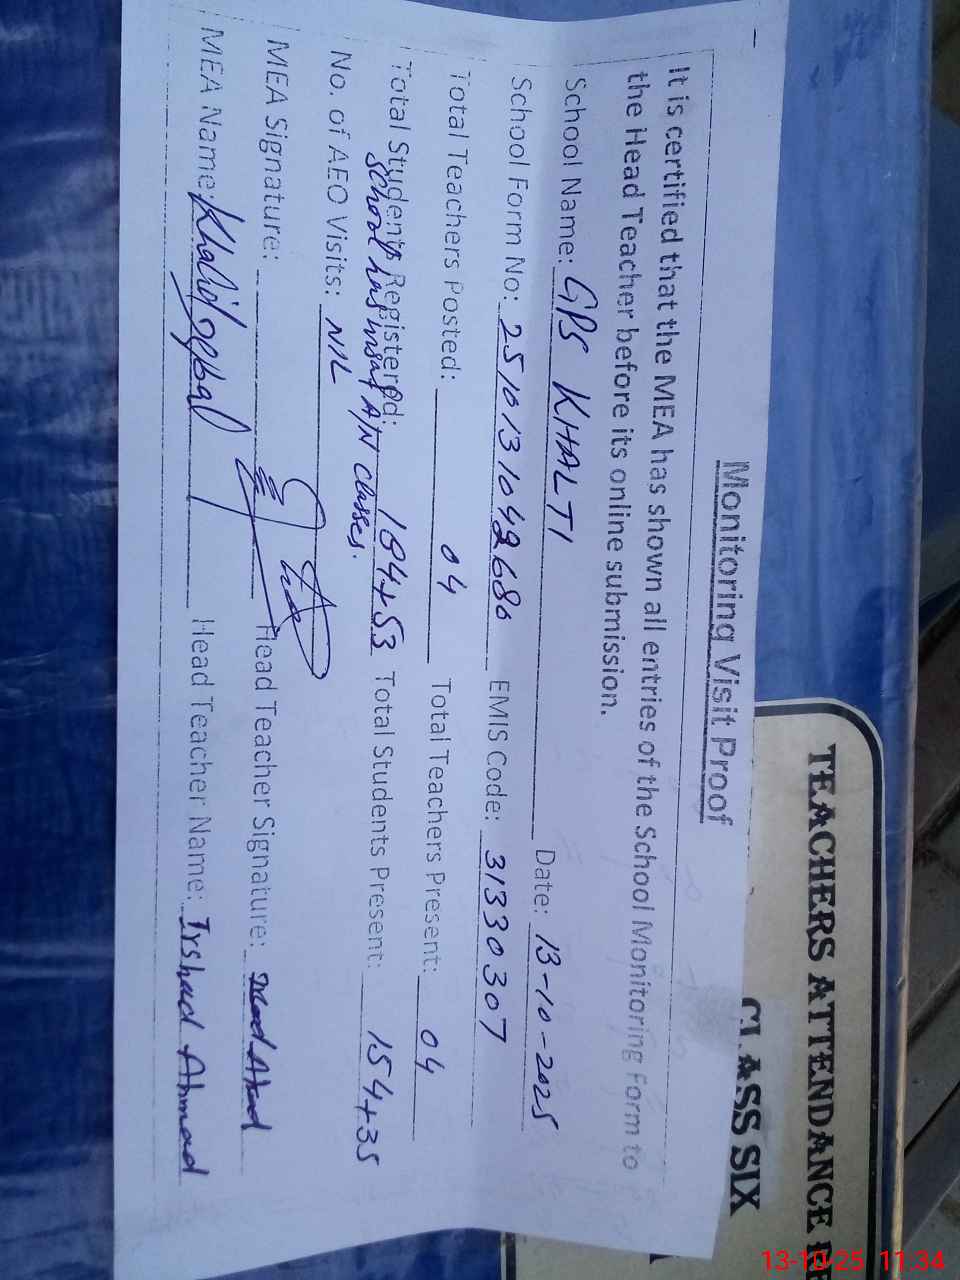 Monitoring Visit Proof
It is certified that the MEA has shown all entries of the School Monitoring Form to
the Head Teacher before its online submission.
School Name: GPS KHALTI Date: 13-10-2025
School Form No: 2510131042680 EMIS Code: 31330307
Total Teachers Posted: 04 Total Teachers Present: 04
Total Students Registered: 184+53 Total Students Present: 154+35
School has insaf A/N classes.
No. of AEO Visits: NIL
MEA Signature: Head Teacher Signature:
MEA Name: Khalid Iqbal Head Teacher Name: Irshad Ahmad
TEACHERS ATTENDANCE
CLASS SIX
13-10-25 11:34